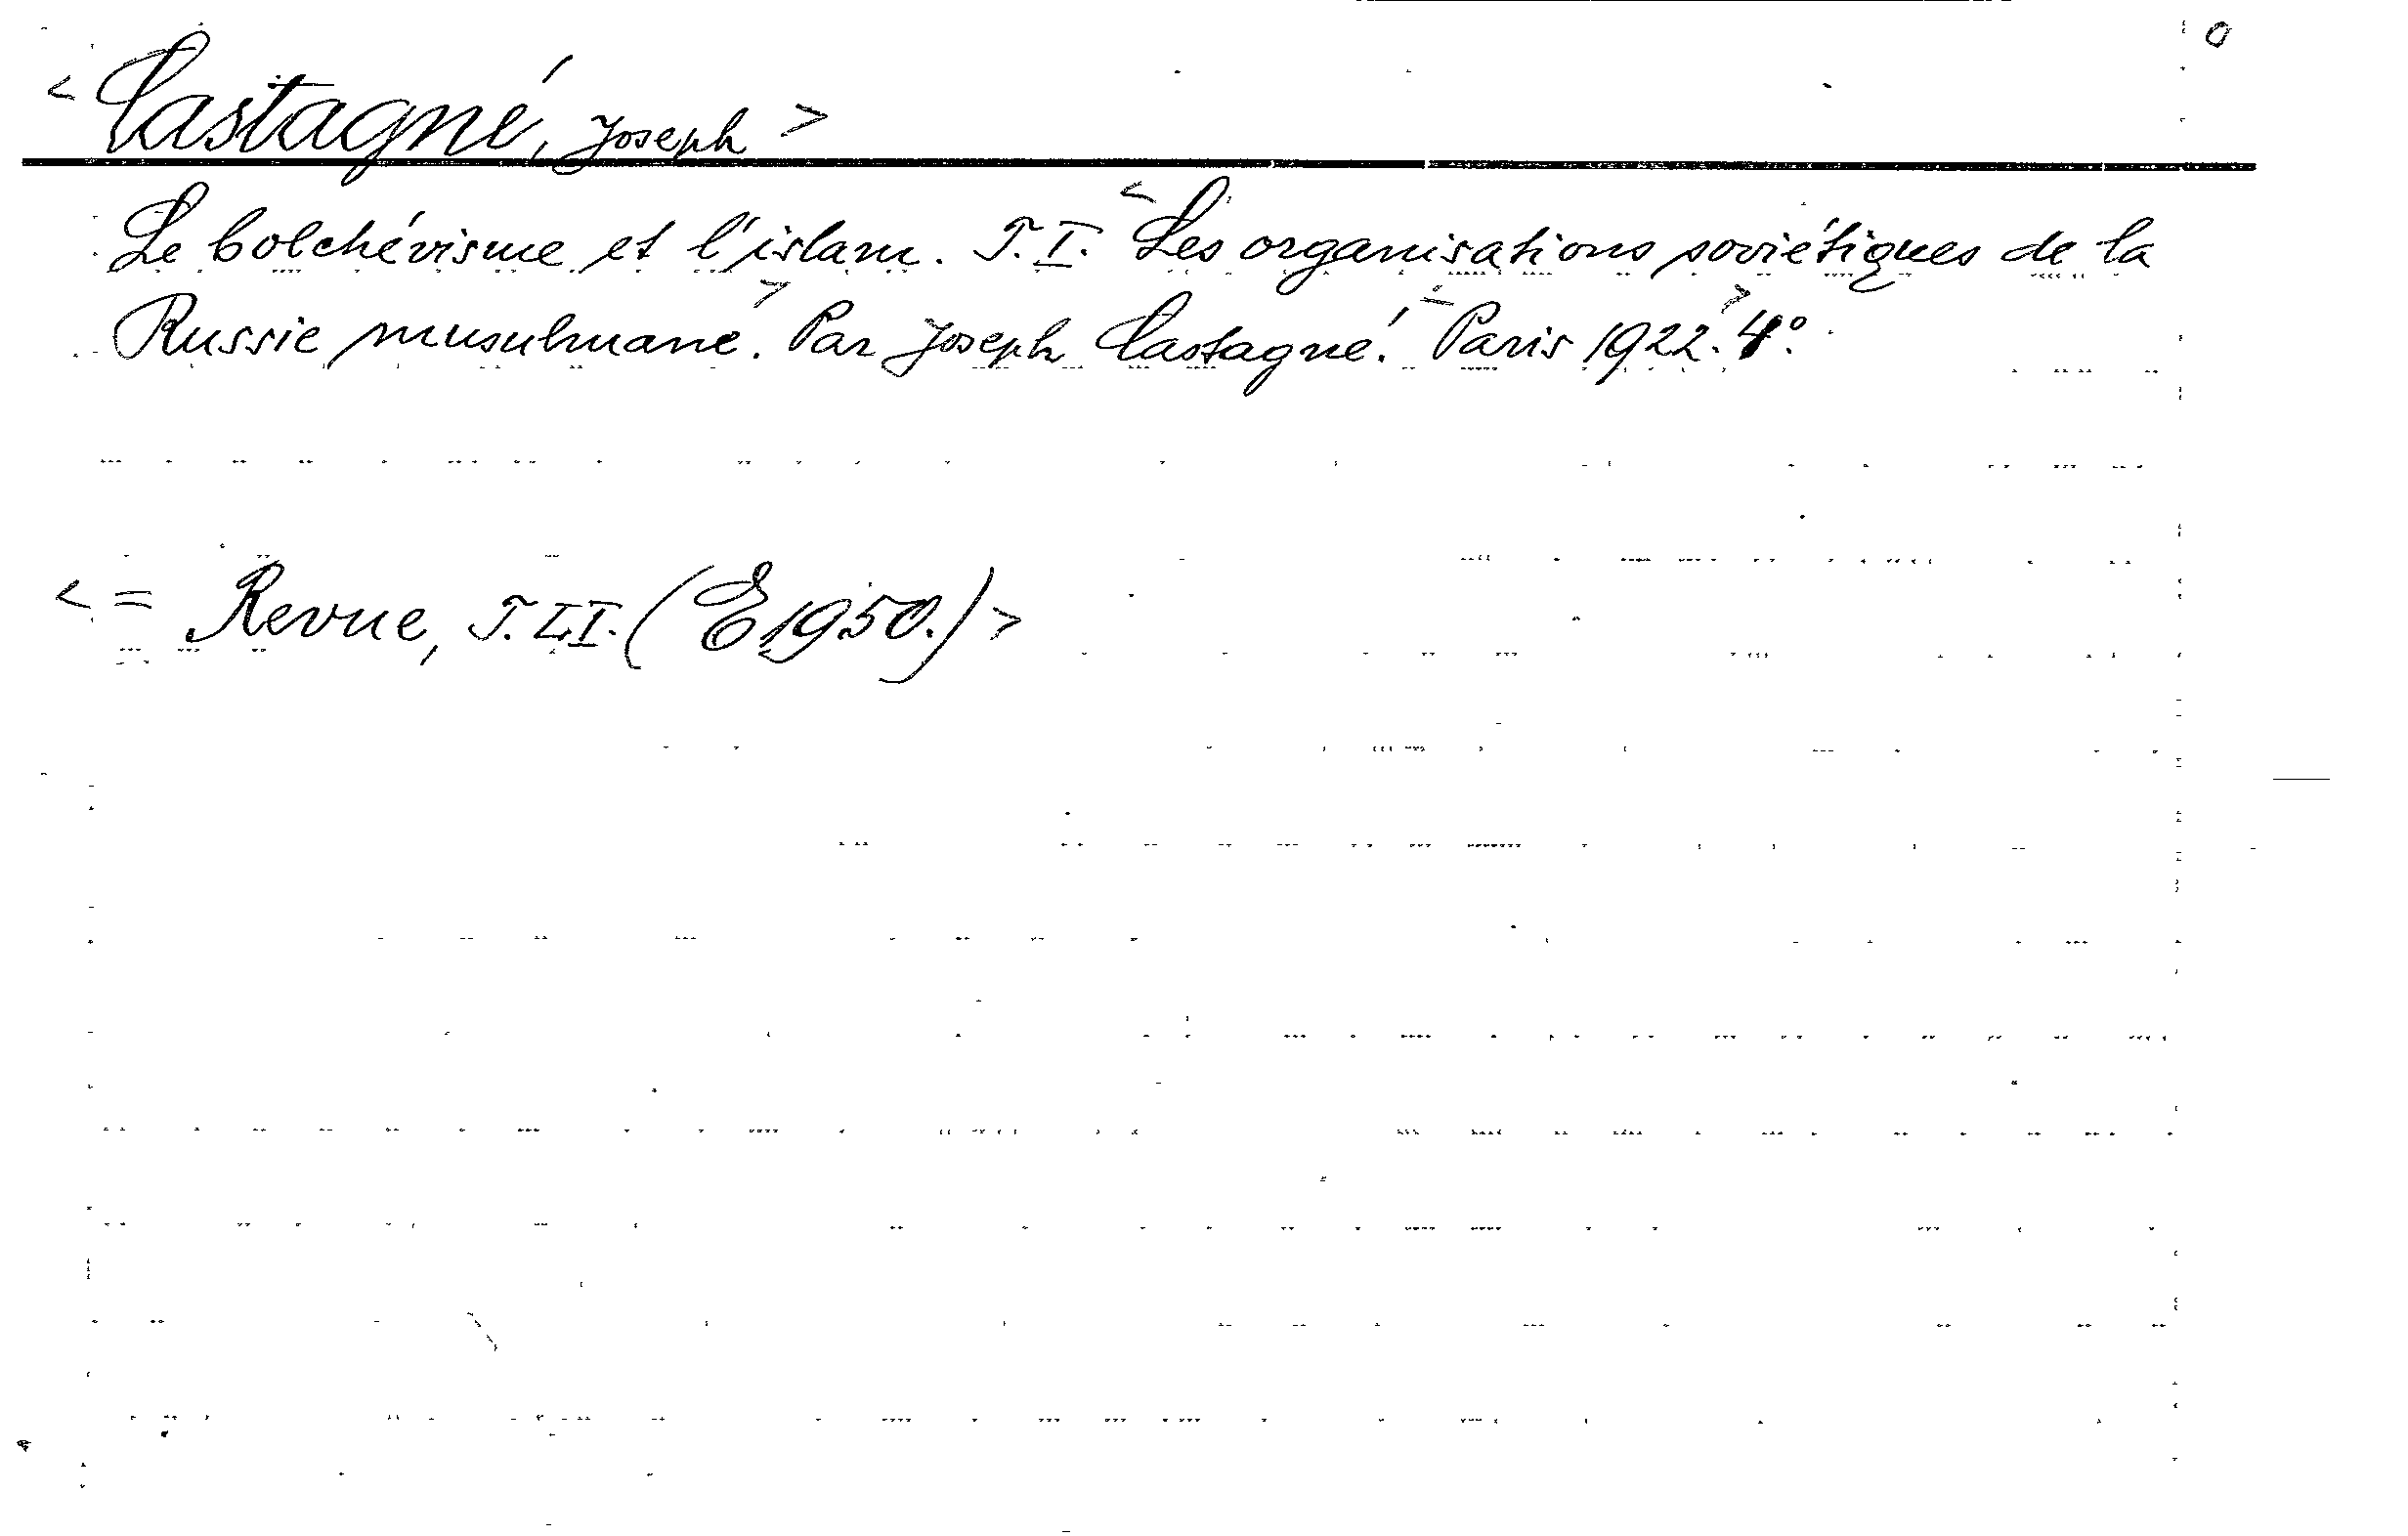 < Castagné, Joseph > 0
Le bolchévisme et l'islam. T.I. <Les organisations soviétiques de la
Russie musulmane>. Par Joseph Castagné. <Paris 1922>. 4°.
< = Revue, T. LI. (E 1950.) >